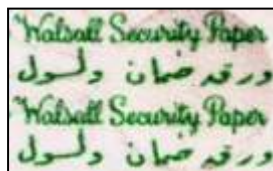 Walsall Security Paper
ورقه ضمان ولسول
Walsall Security Paper
ورقه ضمان ولسول